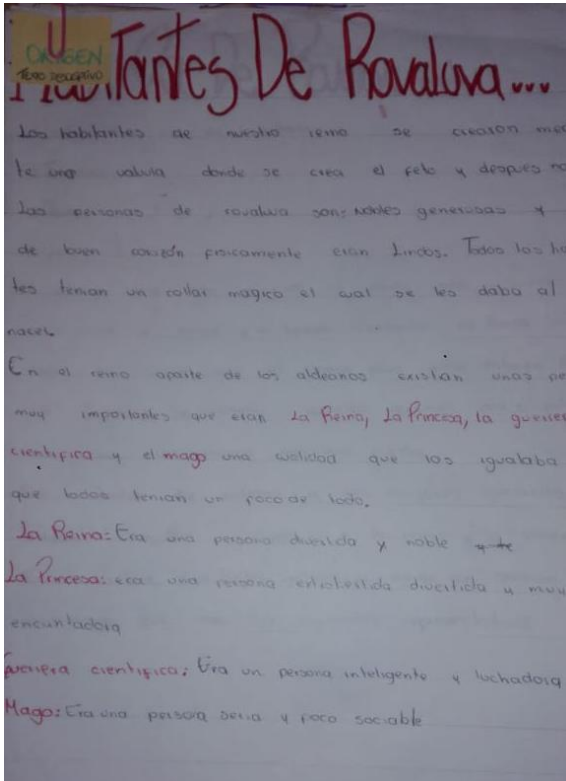 ORIGEN
TEXTO DESCRIPTIVO
Habitantes De Rovaluva...
Los habitantes de nuestro reino se crearon
te una valvula donde se crea el feto y despues
Las personas de rovaluva son: Nobles generosas y
de buen corazón fisicamente eran Lindos. Todos los
tes tenian un collar magico el cual se les daba al
nacer.
En el reino aparte de los aldeanos existian unas pe
muy importantes que eran La Reina, La Princesa, la guerrer
cientifica y el mago una cualidad que los igualaba
que todos tenian un poco de todo.
La Reina: Era una persona divertida y noble
La Princesa: era una persona extrovertida divertida y muy
encantadora
Guerrera cientifica: Era un persona inteligente y luchadora
Mago: Era una persona seria y poco sociable